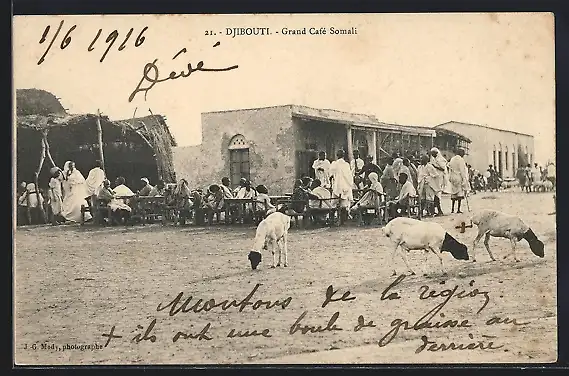 21. - DJIBOUTI. - Grand Café Somali
1/6 1916
Dédé
Moutons de la région.
+ ils ont une boule de graisse au
derrière.
J. G. Mody, photographe